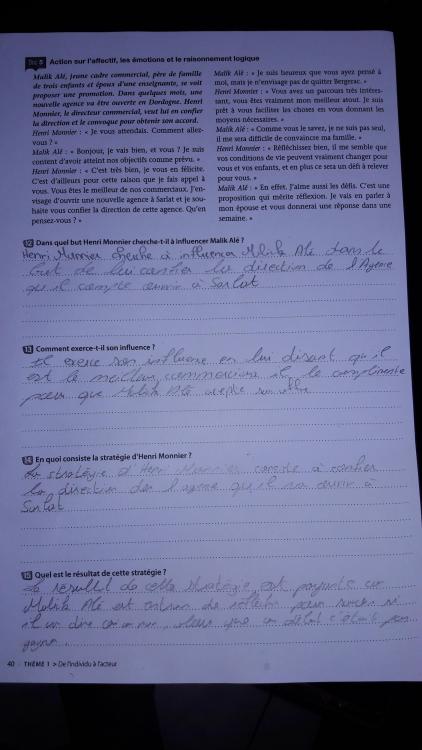 Doc 5 Action sur l'affectif, les émotions et le raisonnement logique
Malik Alé, jeune cadre commercial, père de famille
de trois enfants et époux d'une enseignante, se voit
proposer une promotion. Dans quelques mois, une
nouvelle agence va être ouverte en Dordogne. Henri
Monnier, le directeur commercial, veut lui en confier
la direction et le convoque pour obtenir son accord.
Henri Monnier : « Je vous attendais. Comment allez-
vous ? »
Malik Alé : « Bonjour, je vais bien, et vous ? Je suis
content d'avoir atteint nos objectifs comme prévu. »
Henri Monnier : « C'est très bien, je vous en félicite.
C'est d'ailleurs pour cette raison que je fais appel à
vous. Vous êtes le meilleur de nos commerciaux. J'en-
visage d'ouvrir une nouvelle agence à Sarlat et je sou-
haite vous confier la direction de cette agence. Qu'en
pensez-vous ? »
Malik Alé : « Je suis heureux que vous ayez pensé à
moi, mais je n'envisage pas de quitter Bergerac. »
Henri Monnier : « Vous avez un parcours très intéres-
sant, vous êtes vraiment mon meilleur atout. Je suis
prêt à vous faciliter les choses en vous donnant les
moyens nécessaires. »
Malik Alé : « Comme vous le savez, je ne suis pas seul,
il me sera difficile de convaincre ma famille. »
Henri Monnier : « Réfléchissez bien, il me semble que
vos conditions de vie peuvent vraiment changer pour
vous et vos enfants, et en plus ce sera un défi à relever
pour vous. »
Malik Alé : « En effet. J'aime aussi les défis. C'est une
proposition qui mérite réflexion. Je vais en parler à
mon épouse et vous donnerai une réponse dans une
semaine. »
12 Dans quel but Henri Monnier cherche-t-il à influencer Malik Alé ?
Henri Monnier cherche à influencer Malik Alé dans le
but de lui confier la direction de l'Agence
qu'il compte ouvrir à Sarlat
13 Comment exerce-t-il son influence ?
Il exerce son influence en lui disant qu'il
est le meilleur commercial il le complimente
pour que Malik Alé accepte son offre
14 En quoi consiste la stratégie d'Henri Monnier ?
La stratégie d'Henri Monnier consiste à confier
la direction de l'agence qu'il ouvrir à
Sarlat
15 Quel est le résultat de cette stratégie ?
Le résultat de cette stratégie est car
Malik Alé est de pour
dire que au début c'était pas
gagner.
40 THÈME 1 > De l'individu à l'acteur